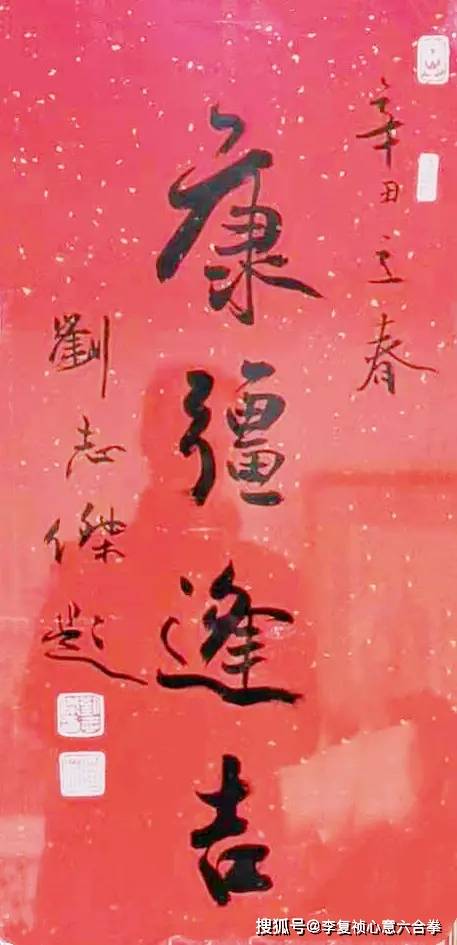 辛丑立春
康彊逢吉
劉志傑題
搜狐号@李复祯心意六合拳